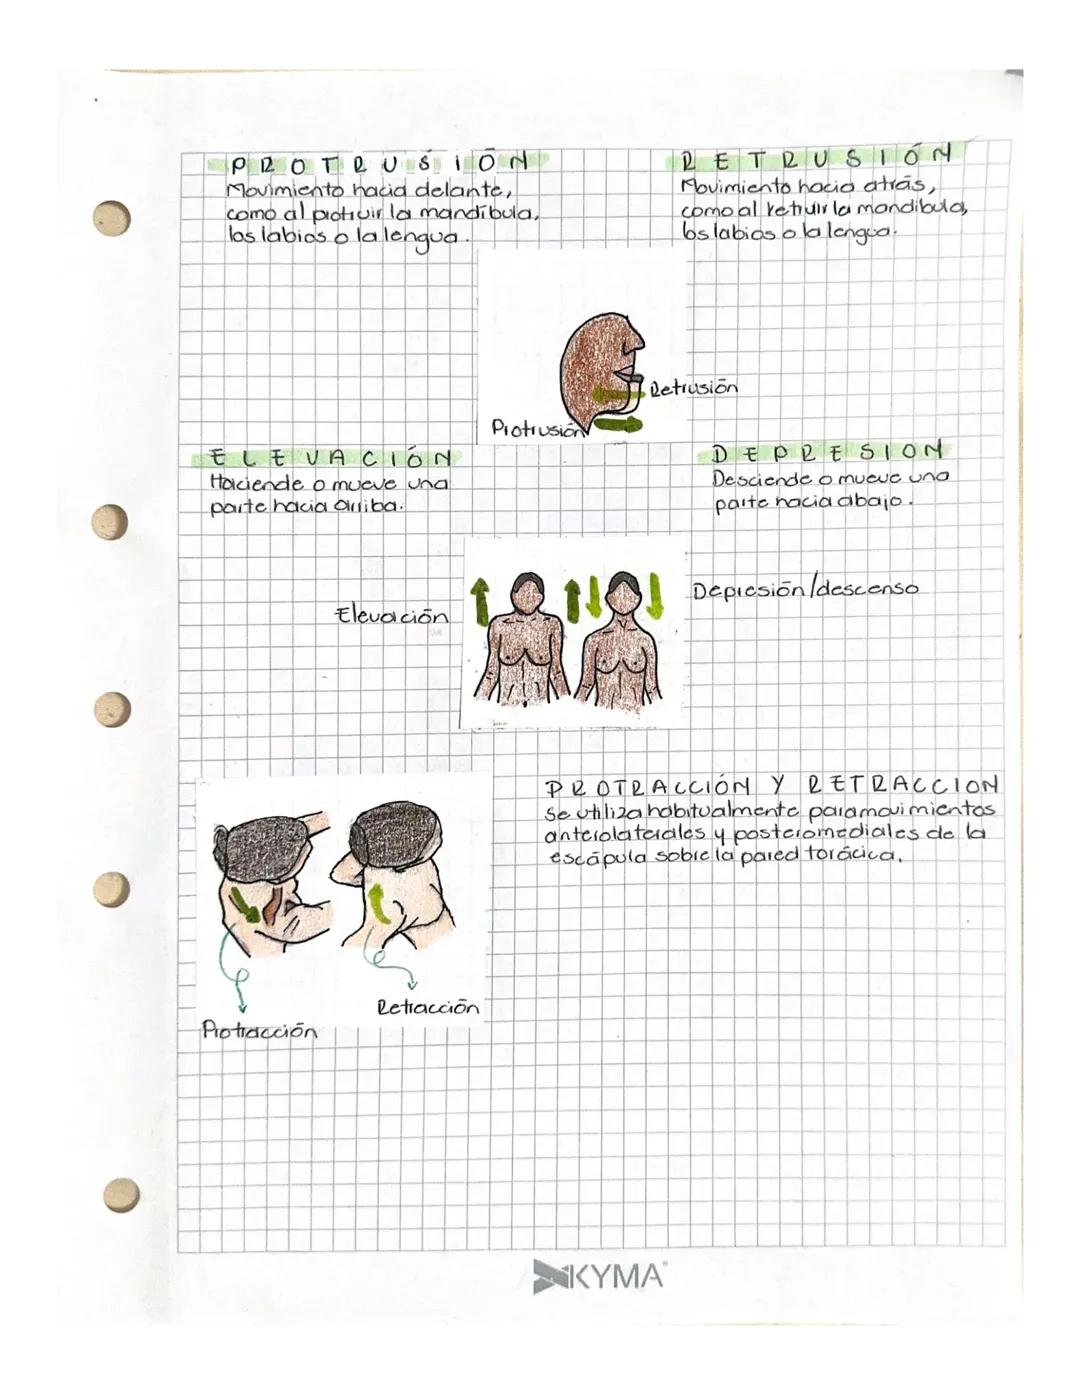 PROTRUSIÓN
Movimiento hacia delante,
como al protruir la mandíbula,
los labios o la lengua.
RETRUSIÓN
Movimiento hacia atrás,
como al retruir la mandibula,
los labios o la lengua.
Retrusión
Protrusión
ELEVACIÓN
Haciende o mueve una
parte hacia arriba.
DEPRESION
Desciende o mueve una
parte hacia abajo.
Elevación
Depresión/descenso
PROTRACCIÓN Y RETRACCION
Se utiliza habitualmente para movimientos
anterolaterales y posteromediales de la
escápula sobre la pared torácica.
Retracción
Protracción
KYMA